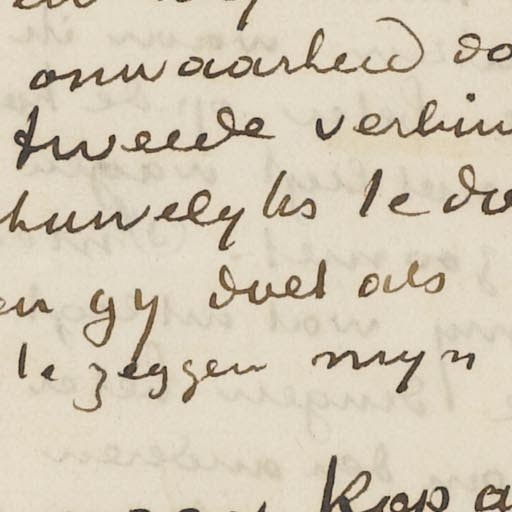 onwaarheid do
tweede verbin
huwelyks te do
en gy doet als
te zeggen myn
Kop a